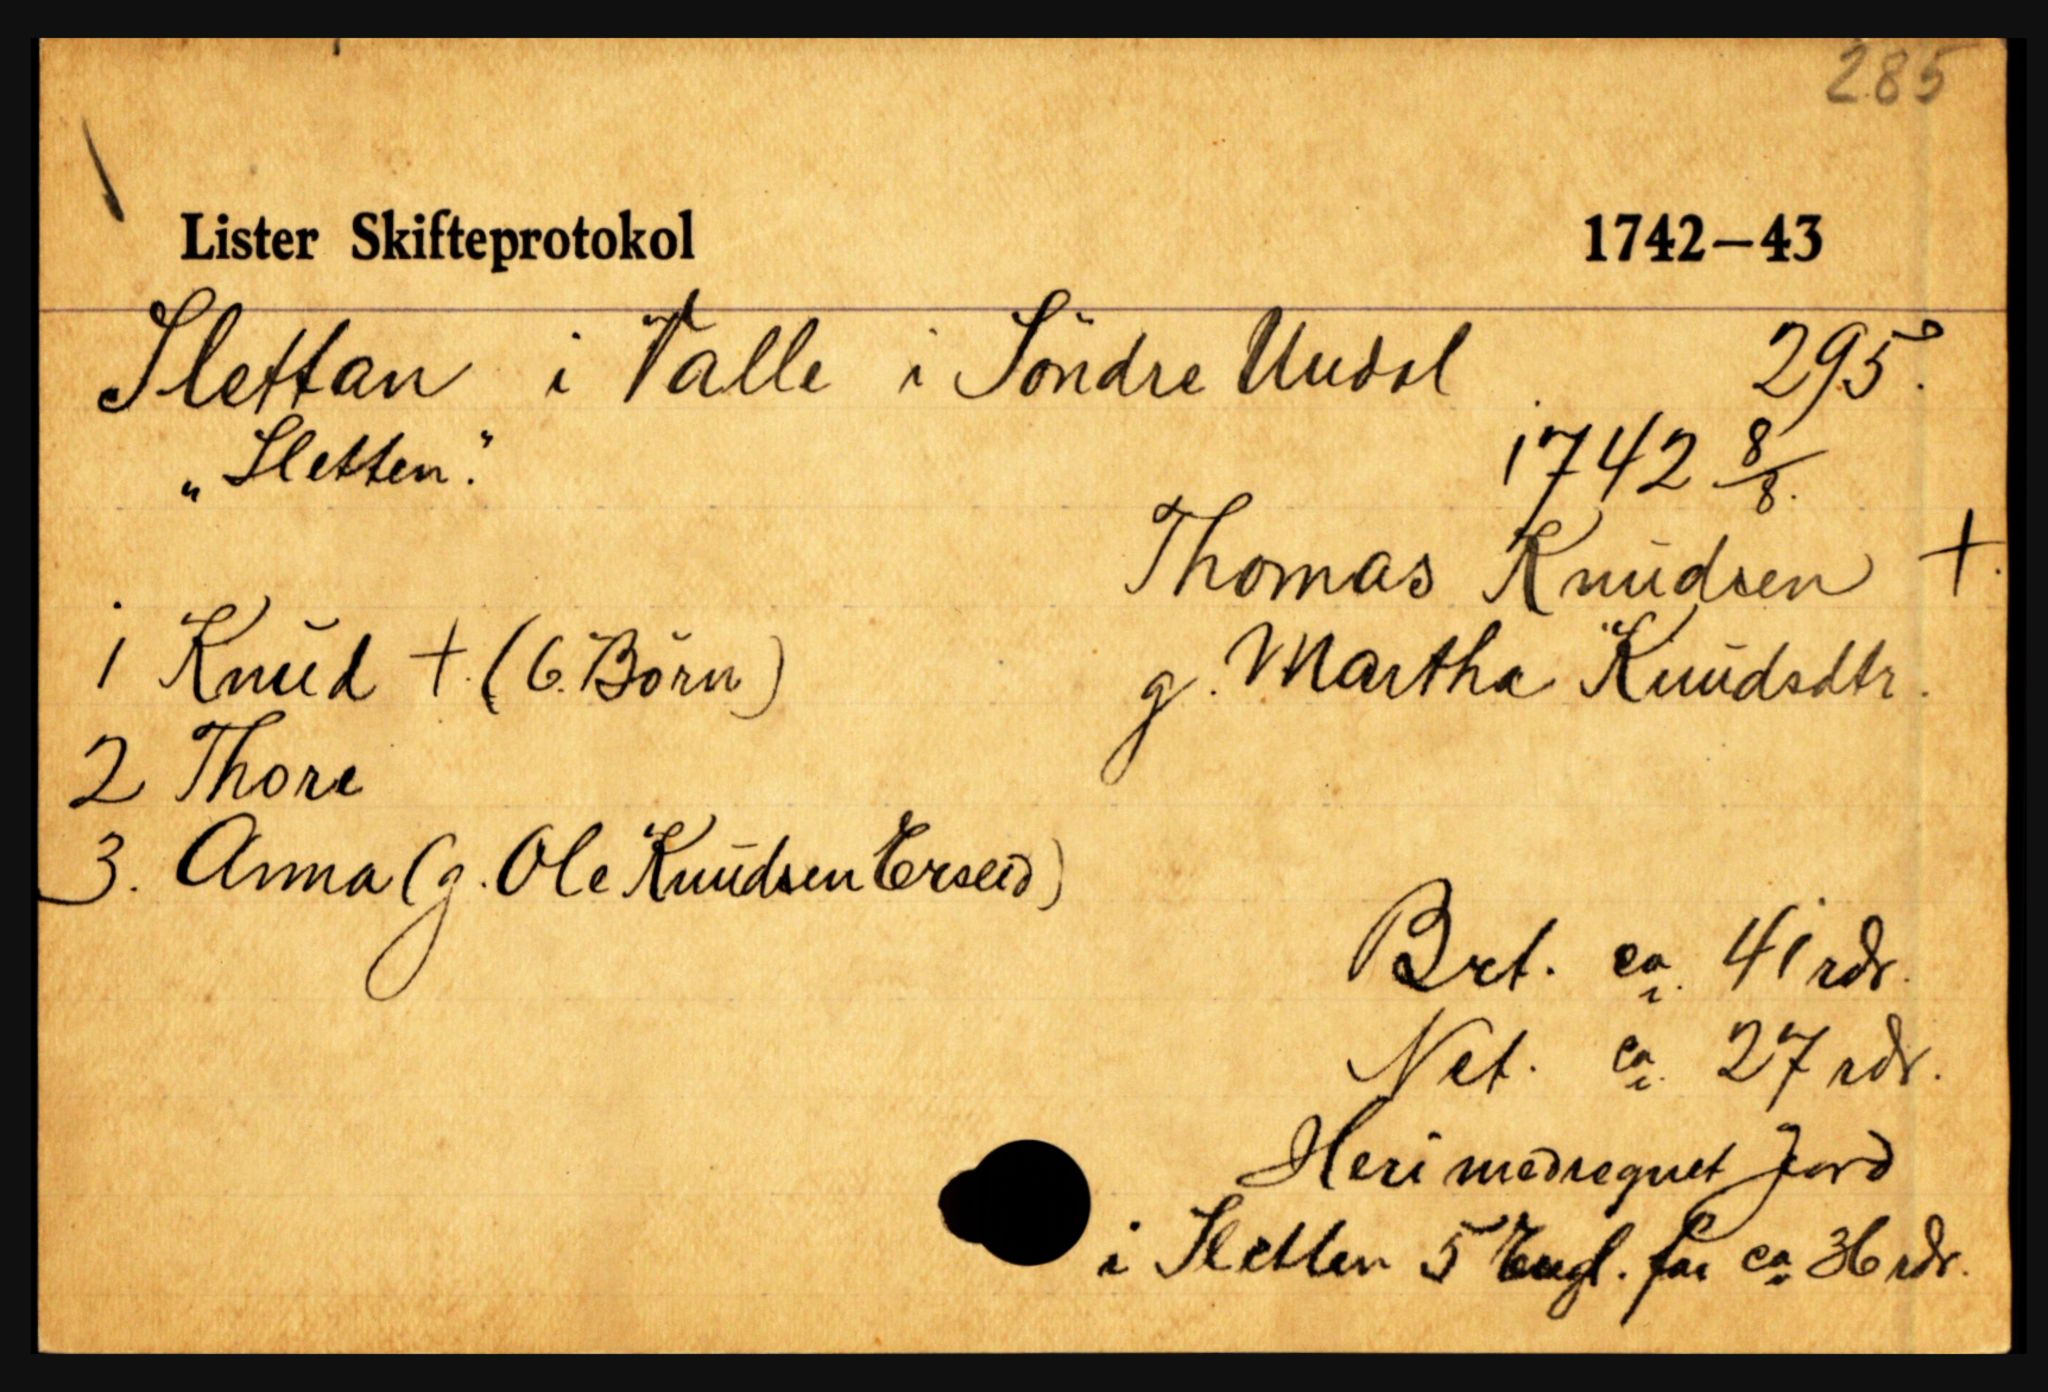 285
Lister Skifteprotokol 1742–43
Slettan i Valle i Söndre Undal 295.
„Sletten."
1742 8/8.
Thomas Knudsen +.
1 Knud +. (6. Börn) g. Martha Knudsdtr.
2 Thore
3. Anna (g. Ole Knudsen Erseid)
Brt. ca. 41 rdr.
Net. ca. 27 rdr.
Heri medregnet Jord
i Sletten 5 Engl. for ca 36 rdr.